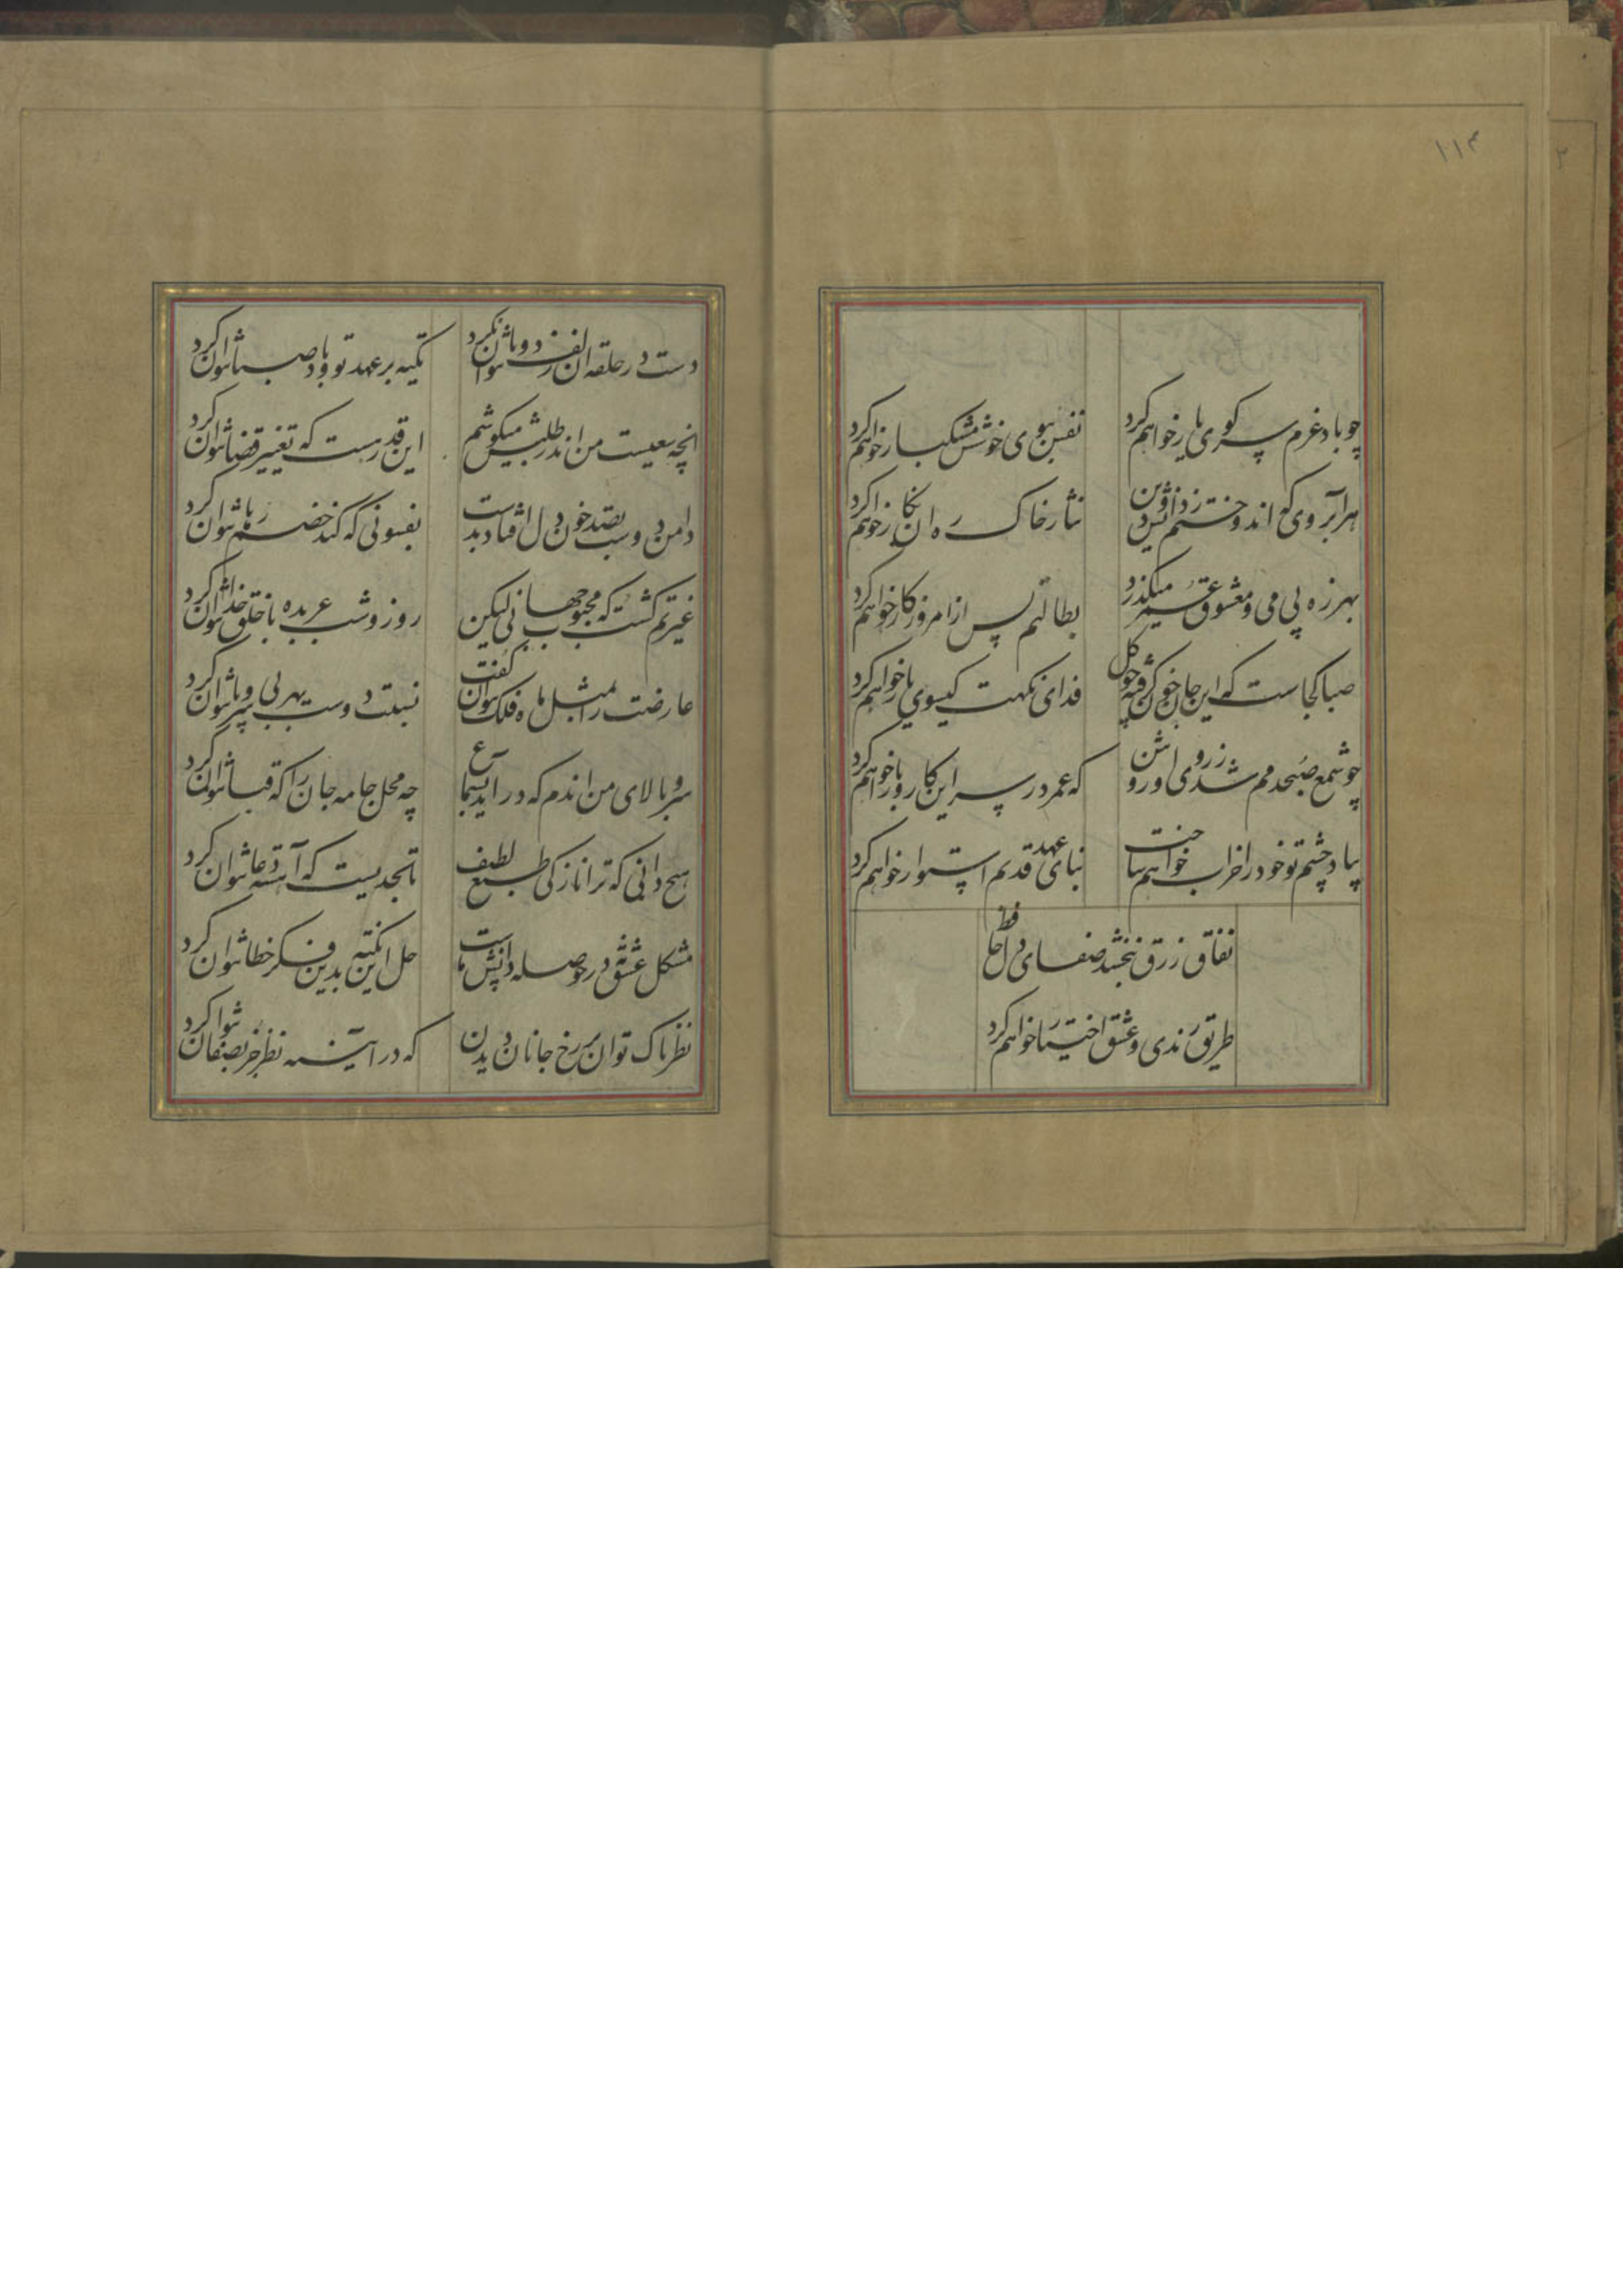 ۱۱۴
۲
چو باد عزم سر کوی یار خواهم کرد نفس ببوی خوشش مشکبار خواهم کرد
هر آبروی که اندوختم ز دانش و دین نثار خاک ره آن نگار خواهم کرد
بهرزه بی می و معشوق عمر میگذرد بطالتم بس از امروز کار خواهم کرد
صبا کجاست که این جان خون گرفته چو گل فدای نکهت کیسوی یار خواهم کرد
چو شمع صبحدمم شد ز روی او روشن که عمر در سر این کار و بار خواهم کرد
بیاد چشم تو خود را خراب خواهم ساخت بنای عهد قدیم استوار خواهم کرد
نفاق و زرق نبخشد صفای دل حافظ
طریق رندی و عشق اختیار خواهم کرد
دست در حلقه آن زلف دوتا نتوان کرد تکیه بر عهد تو و باد صبا نتوان کرد
انچه سعیست من اندر طلبش میکوشم این قدر هست که تغییر قضا نتوان کرد
دامن دوست بصد خون دل افتاد بدست بفسونی که کند خصم رها نتوان کرد
غیرتم کشت که محبوب جهانی لیکن روز و شب عربده با خلق خدا نتوان کرد
عارضت را بمثل ماه فلک نتوان گفت نسبت دوست بهر بی سر و پا نتوان کرد
سرو بالای من اندم که در اید بسماع چه محل جامه جان را که قبا نتوان کرد
هیچ دانی که ترا نازکی طبع لطیف تا بحدیست که آهسته دعا نتوان کرد
مشکل عشق نه در حوصله دانش ماست حل این نکته بدین فکر خطا نتوان کرد
نظر پاک توان بر رخ جانان دیدن که در آیینه نظر جز بصفا نتوان کرد